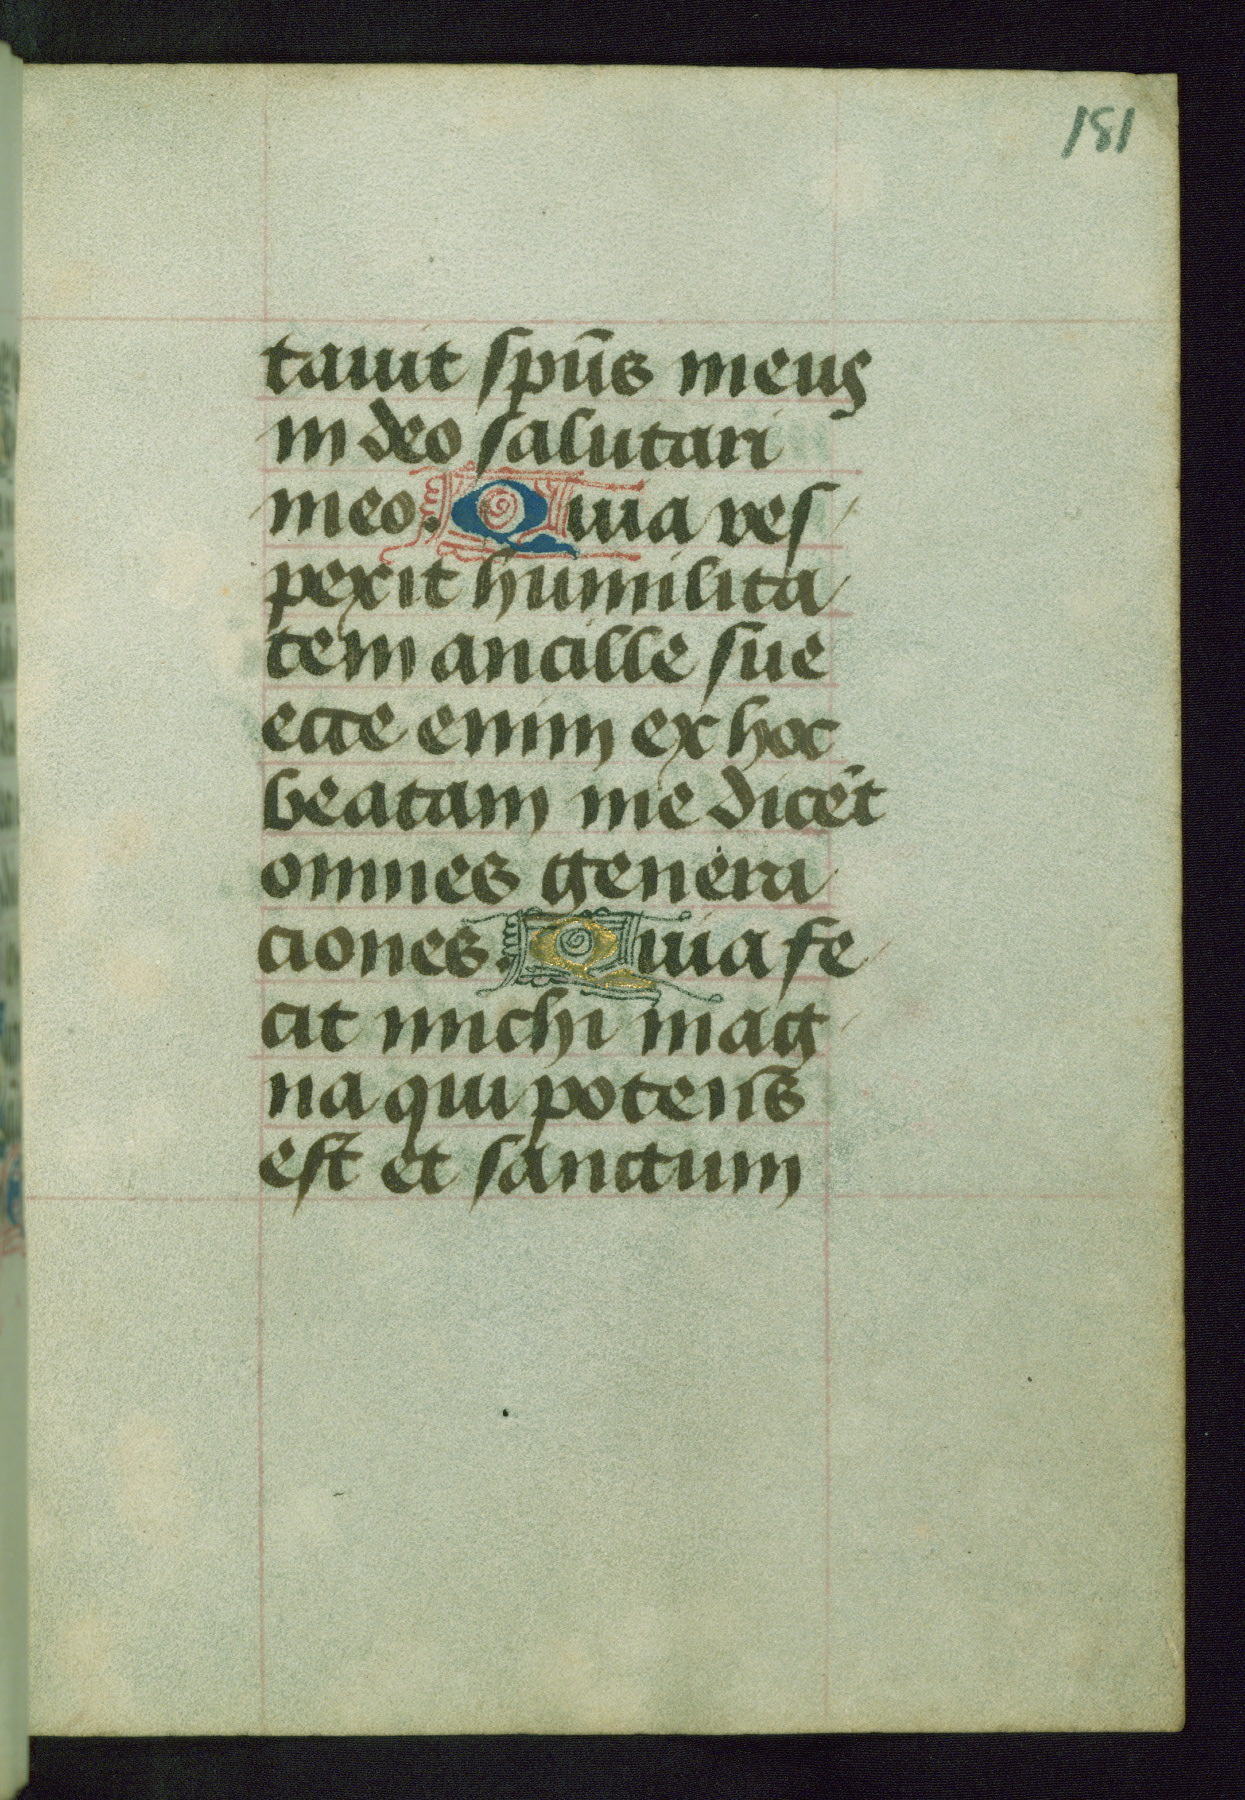 181
tauit sp̄us meus
in deo salutari
meo. Quia res
pexit humilita
tem ancille sue
ecce enim ex hoc
beatam me dicēt
omnes genera
ciones. Quia fe
cit michi mag
na qui potens
est et sanctum